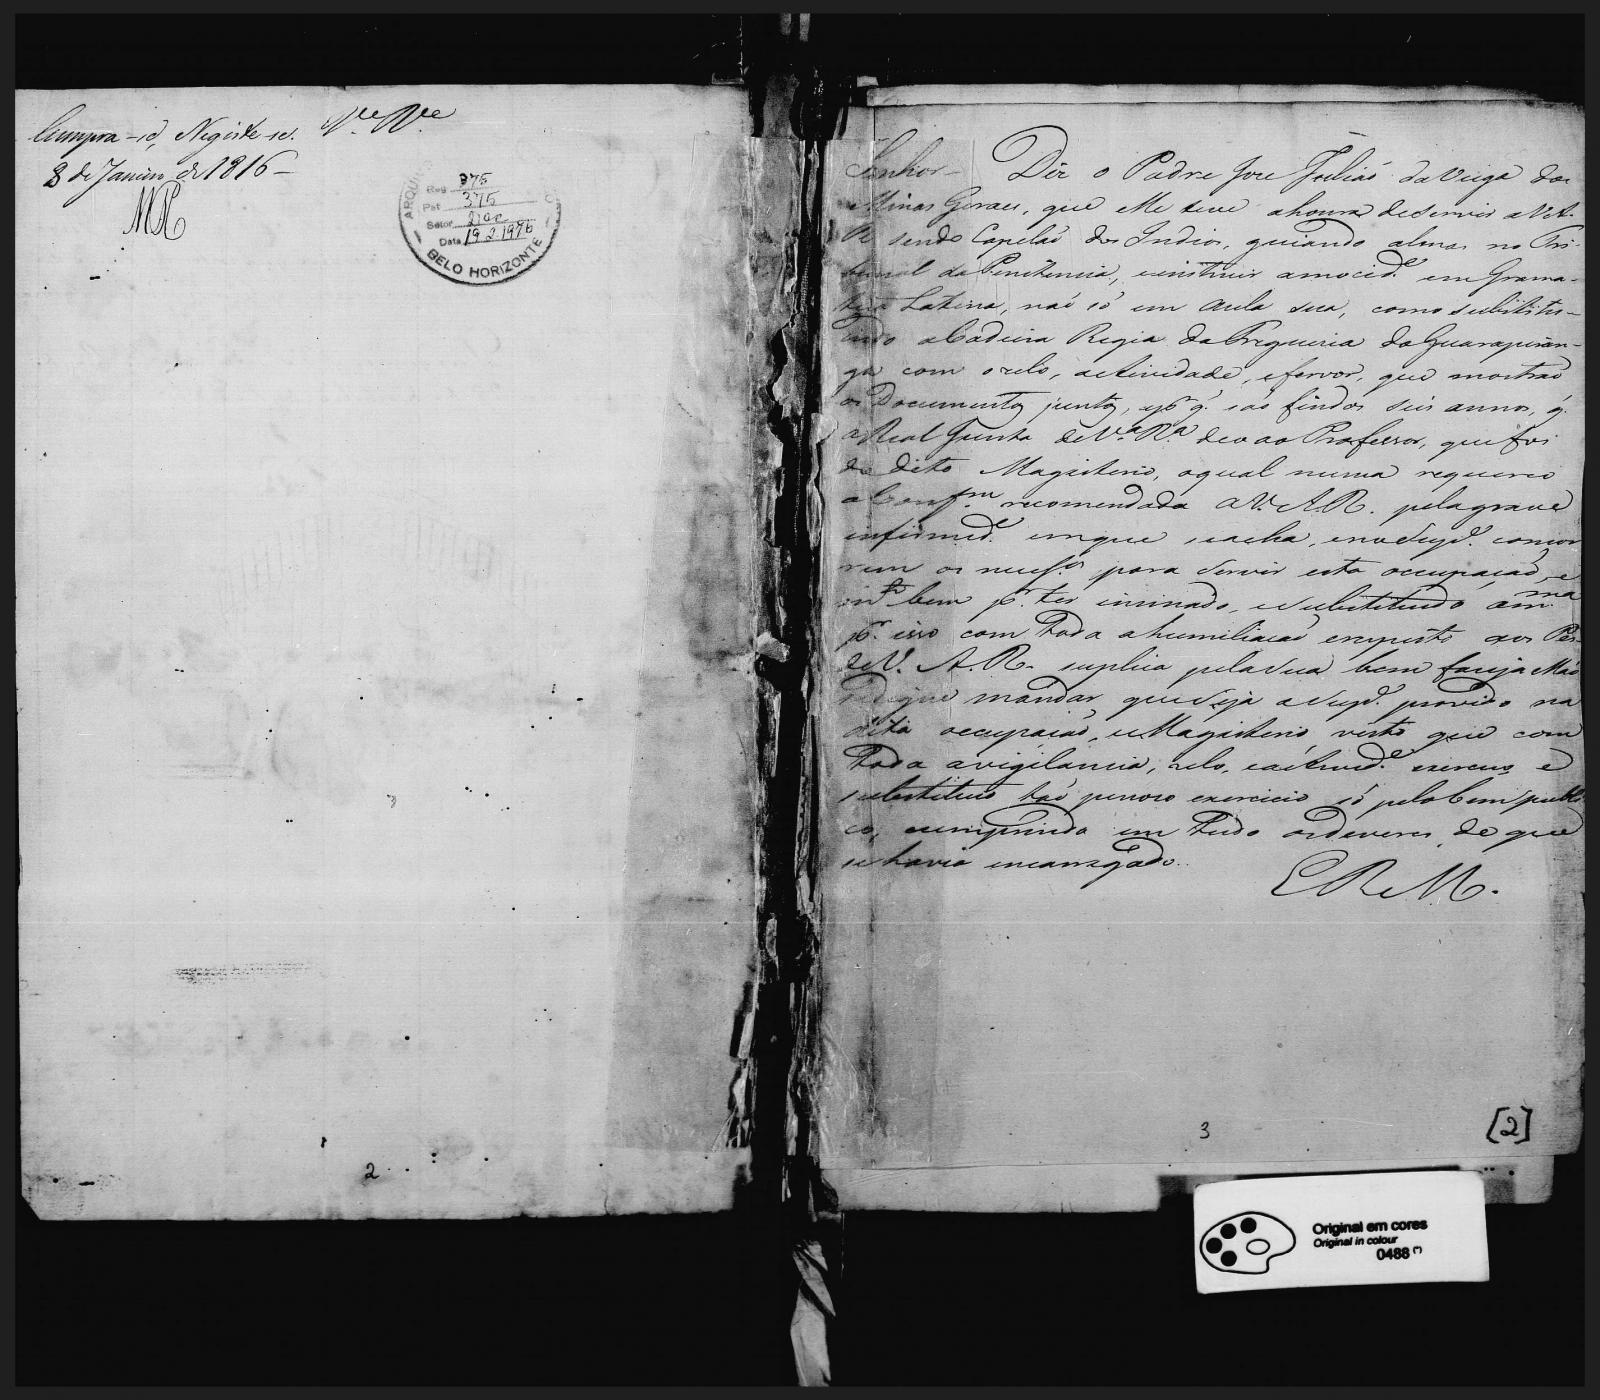 Cumpra-se, Registe-se. Vª Rª
8 de Janeiro de 1816
ARQUIVO
Reg 375
Pat 375
Setor Doc
Data 19.2.1976
BELO HORIZONTE
2
Senhor Diz o Padre Joze Juliaõ da Veiga das
Minas Geraes, que elle teve ahonra deservir aV.A.
R. sendo Capelaõ dos Indios, guiando almas no Tri-
bunal da Penitencia, einstruir amocid.e em Grama-
tica Latina, naõ só em Aula sua, como substitu-
indo aCadeira Regia da Freguezia do Guarapiran-
ga com ozelo, actividade, efervor, que mostraõ
os Documentos juntos, q. saõ findos seis annos, q.
aReal Junta deV.a R.a deo ao Professor, que foi
do dito Magisterio, oqual nunca requereo
recomendada aV.A.R. pelagrave
infirmid.e emque seacha, enoSup.e concor
rem os para servir esta occupaçaõ, e
bem p.r ter insinado, esubstituido am.ma
p.r isso com toda ahumiliaçaõ aos Pés
deV. A. R. suplica pelaSua bem fazeja Maõ
sedigne mandar queSeja oSup.e provido na
dita occupaçaõ, eMagisterio visto que com
toda avigilancia, zelo, eactivid.e exerceu e
substituio taõ penozo exercicio só pelobem publi
co, cumprindo em tudo osdeveres de que
se havia encarregado.
E R M.
3
[2]
Original em cores
Original in colour
0488 (*)